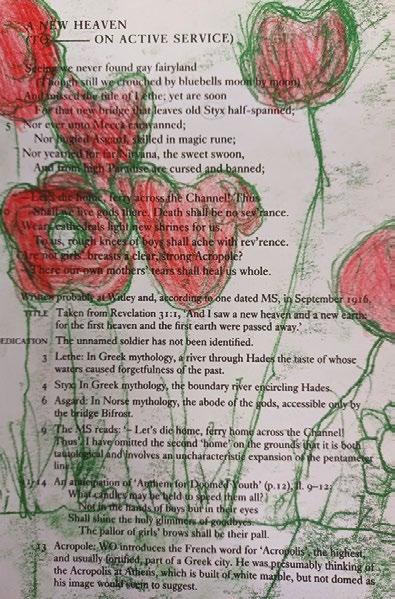 A NEW HEAVEN
(TO —— ON ACTIVE SERVICE)
Seeing we never found gay fairyland
(Though still we crouched by bluebells moon by moon)
And missed the tide of Lethe; yet are soon
For that new bridge that leaves old Styx half-spanned;
5 Nor ever unto Mecca caravanned;
Nor bugled Asgard, skilled in magic rune;
Nor yearned for far Nirvana, the sweet swoon,
And from high Paradise are cursed and banned;
Let's die home, ferry across the Channel! Thus
Shall we live gods there. Death shall be no sev'rance.
Weary cathedrals light new shrines for us.
To us, rough knees of boys shall ache with rev'rence.
Are not girls' breasts a clear, strong Acropole?
There our own mothers' tears shall heal us whole.
Written probably at Witley and, according to one dated MS, in September 1916.
TITLE Taken from Revelation 31:1, 'And I saw a new heaven and a new earth:
for the first heaven and the first earth were passed away.'
DEDICATION The unnamed soldier has not been identified.
3 Lethe: In Greek mythology, a river through Hades the taste of whose
waters caused forgetfulness of the past.
4 Styx: In Greek mythology, the boundary river encircling Hades.
6 Asgard: In Norse mythology, the abode of the gods, accessible only by
the bridge Bifrost.
9 The MS reads: '– Let's die home, ferry home across the Channel!
Thus'. I have omitted the second 'home' on the grounds that it is both
tautological and involves an uncharacteristic expansion of the pentameter
line.
14 An anticipation of 'Anthem for Doomed Youth' (p. 12), ll. 9–12:
What candles may be held to speed them all?
Not in the hands of boys but in their eyes
Shall shine the holy glimmers of goodbyes.
The pallor of girls' brows shall be their pall.
13 Acropole: WO introduces the French word for 'Acropolis', the highest,
and usually fortified, part of a Greek city. He was presumably thinking of
the Acropolis at Athens, which is built of white marble, but not domed as
his image would seem to suggest.